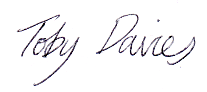 Toby Davies